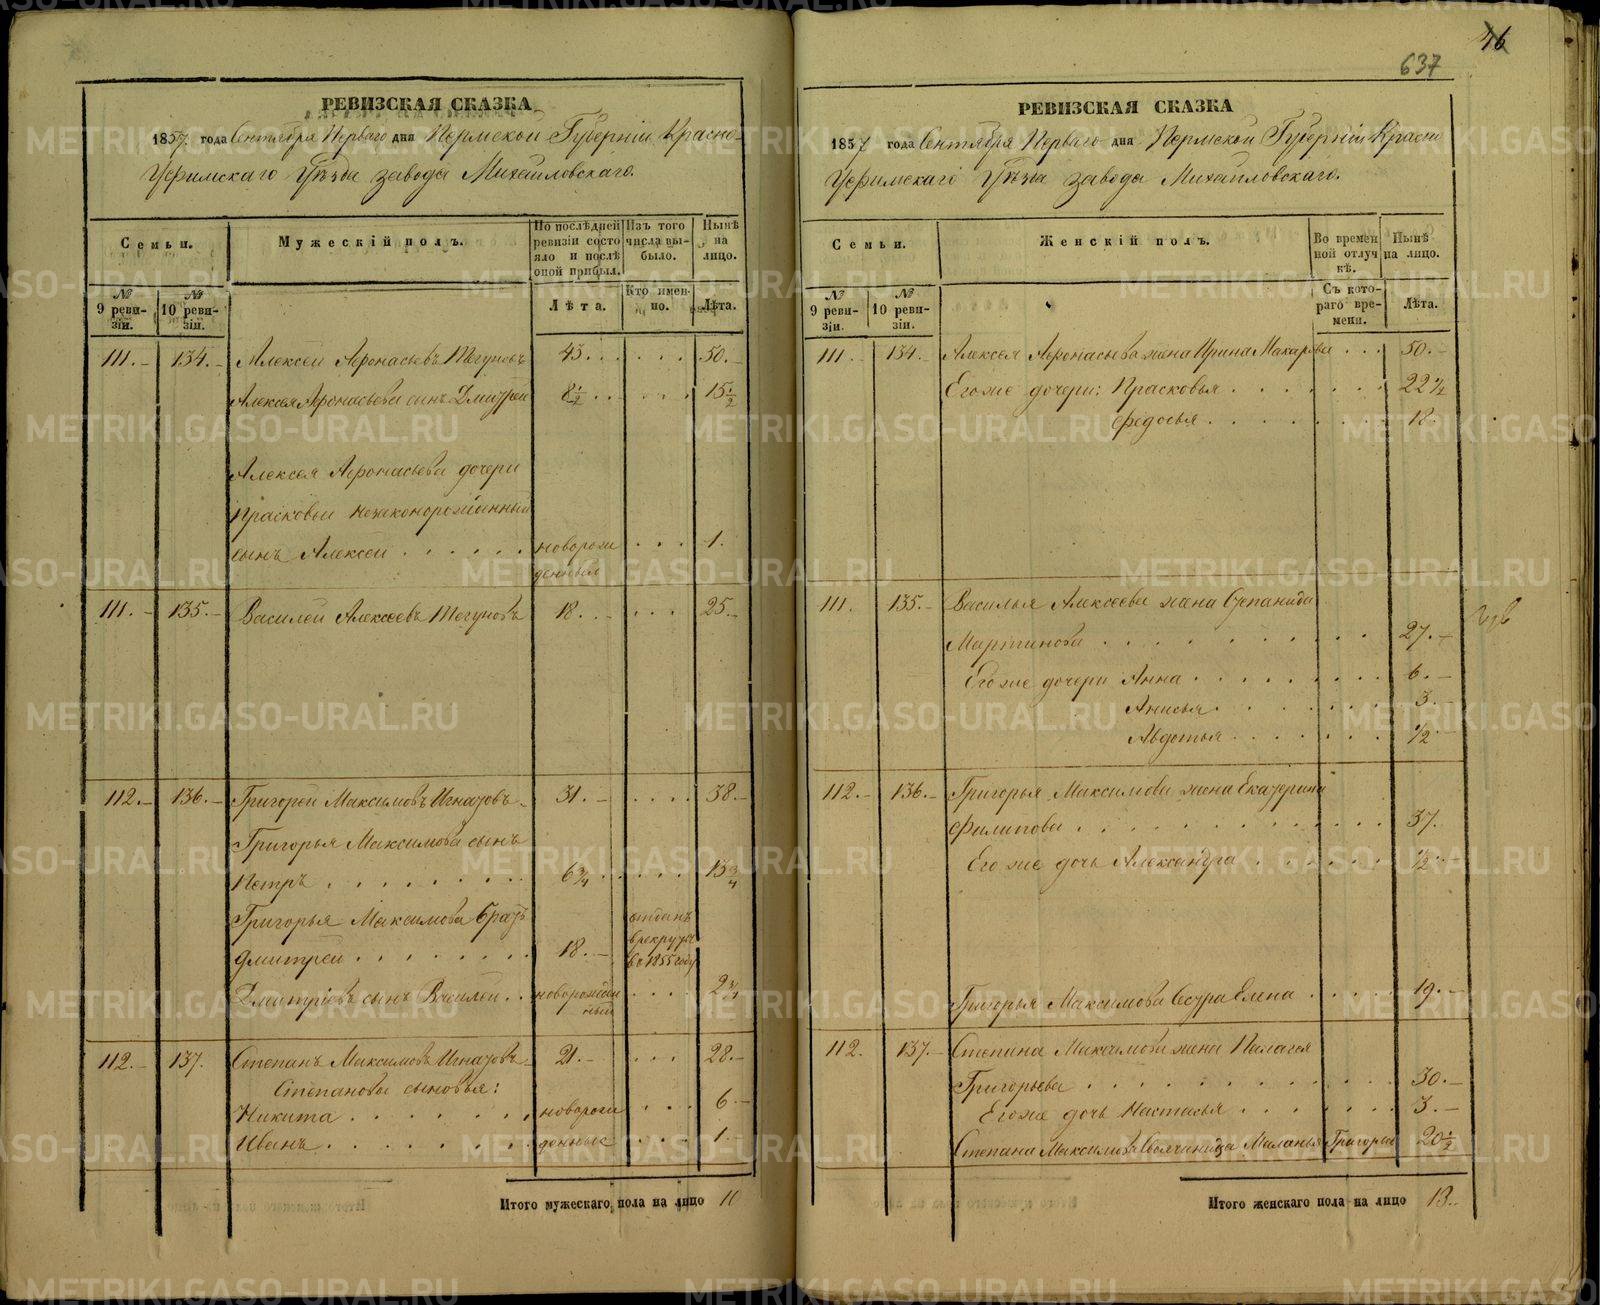 46
637
РЕВИЗСКАЯ СКАЗКА
1857. года Сентября Перваго дня Пермской Губерніи Красно-
Уфимскаго Уѣзда завода Михайловскаго.
Семьи.
Мужескій полъ.
По послѣдней ревизіи состояло и послѣ оной прибыл.
Изъ того числа выбыло.
Нынѣ на лицо.
№ 9 ревизіи.
№ 10 ревизіи.
Лѣта.
Кто именно.
Лѣта.
111. 134. Алексей Афонасьевъ 43. 50.
Алексея Афонасьева сынъ Дмитрей 8 1/2 15 1/2
Алексея Афонасьева дочери
Прасковьи незаконорожданный
сынъ Алексей новорож 1.
денный
111. 135. Василей Алексеевъ 18. 25.
112. 136. Григорей Максимовъ Игнатовъ 31. 38.
Григорья Максимова сынъ
Петръ 6 3/4 13 3/4
Григорья Максимова братъ отданъ
Дмитрей 18. в рекруты
в 1855 году
Дмитріевъ сынъ Василей новорожден 2 3/4
ный
112. 137. Степанъ Максимовъ Игнатовъ 21. 28.
Степановы сыновья:
Никита новорож 6
Иванъ денные 1.
Итого мужескаго пола на лицо
РЕВИЗСКАЯ СКАЗКА
1857 года Сентября Перваго дня Пермской Губерніи Красно
Уфимскаго Уѣзда завода Михайловскаго.
Семьи.
Женскій полъ.
Во временной отлучкѣ.
Нынѣ на лицо.
№ 9 ревизіи.
№ 10 ревизіи.
Съ котораго времени.
Лѣта.
111. 134. Алексея Афонасьева жена Ирина Макарова 50.
Егоже дочери: Прасковья 22 1/2
Федосья 18.
111. 135. Василья Алексеева жена Степанида
Мартинова 27.
Егоже дочери Анна 6.
Анисья 3.
Авдотья 1/2
112. 136. Григорья Максимова жена Екатерина
Филипова 37.
Егоже дочь Александра 1/2
Григорья Максимова сестра Елена 19.
112. 137. Степана Максимова жена Палагея
Григорьева 30.
Егоже дочь Настасья 3.
Степана Максимова Маланья Григорьева 20 1/2
Итого женскаго пола на лицо 13.
METRIKI.GASO-URAL.RU